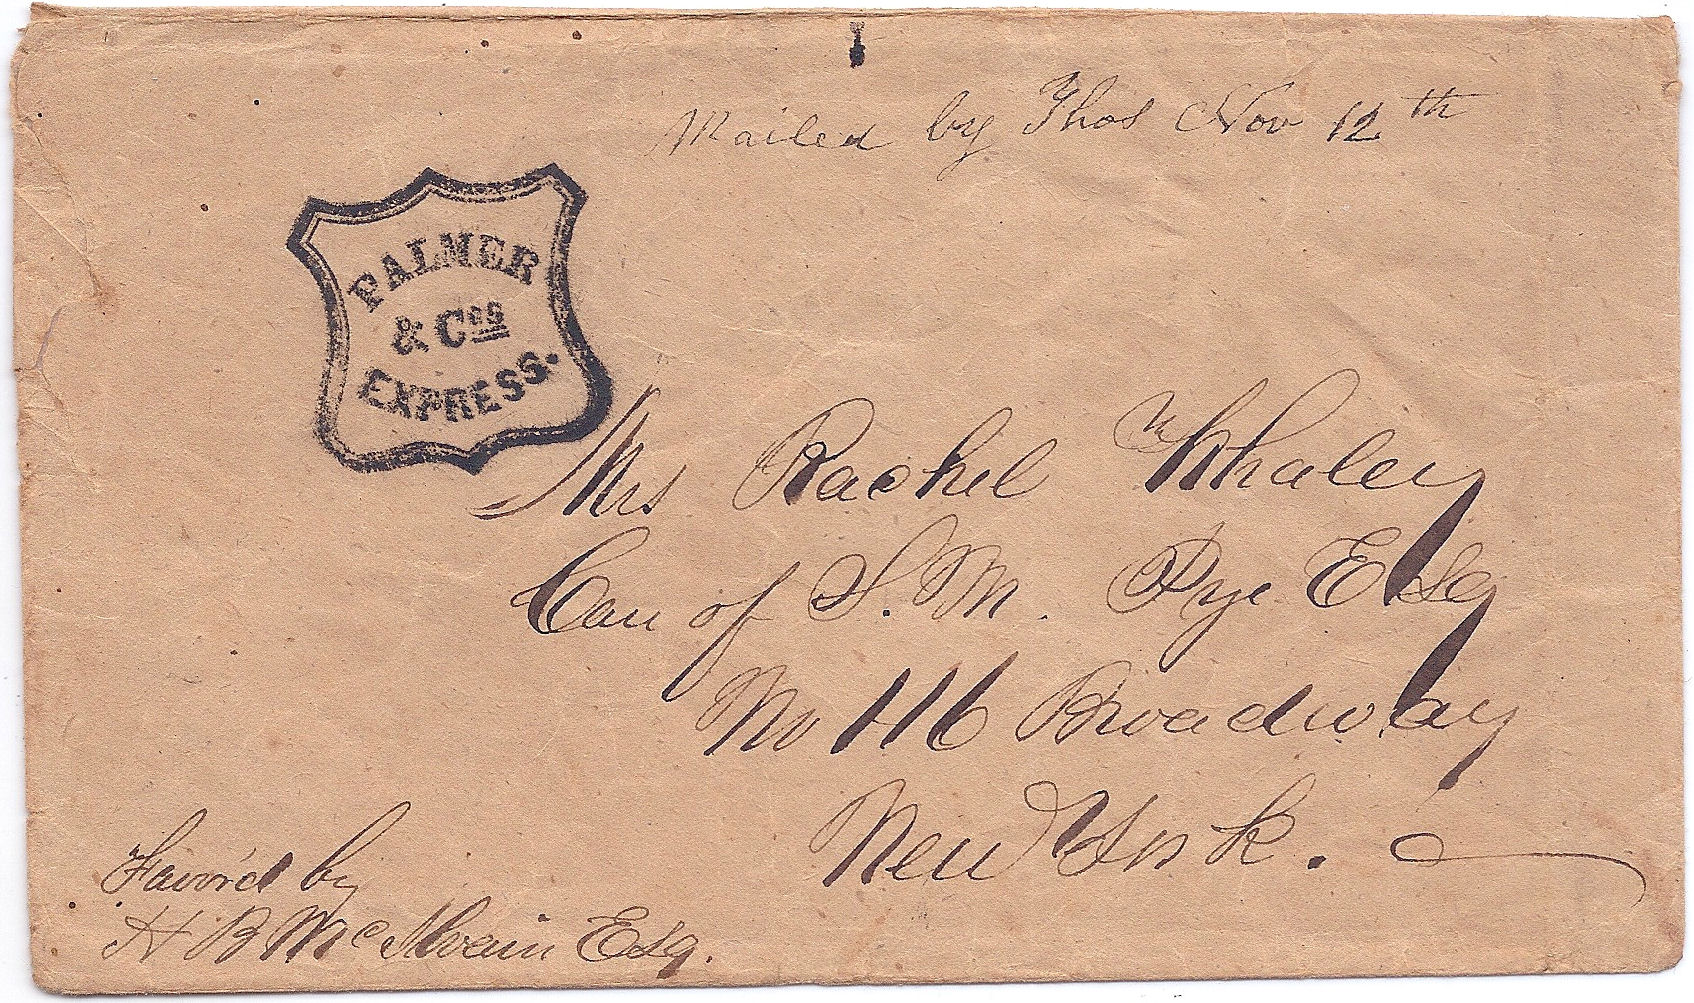 Mailed by Thos Nov 12th
PALMER
& Cos
EXPRESS.
Mrs Rachel Whaley
Care of S. M. Pye Esq
No 116 Broadway
New York.
Favord by
H B McIlvain Esq.